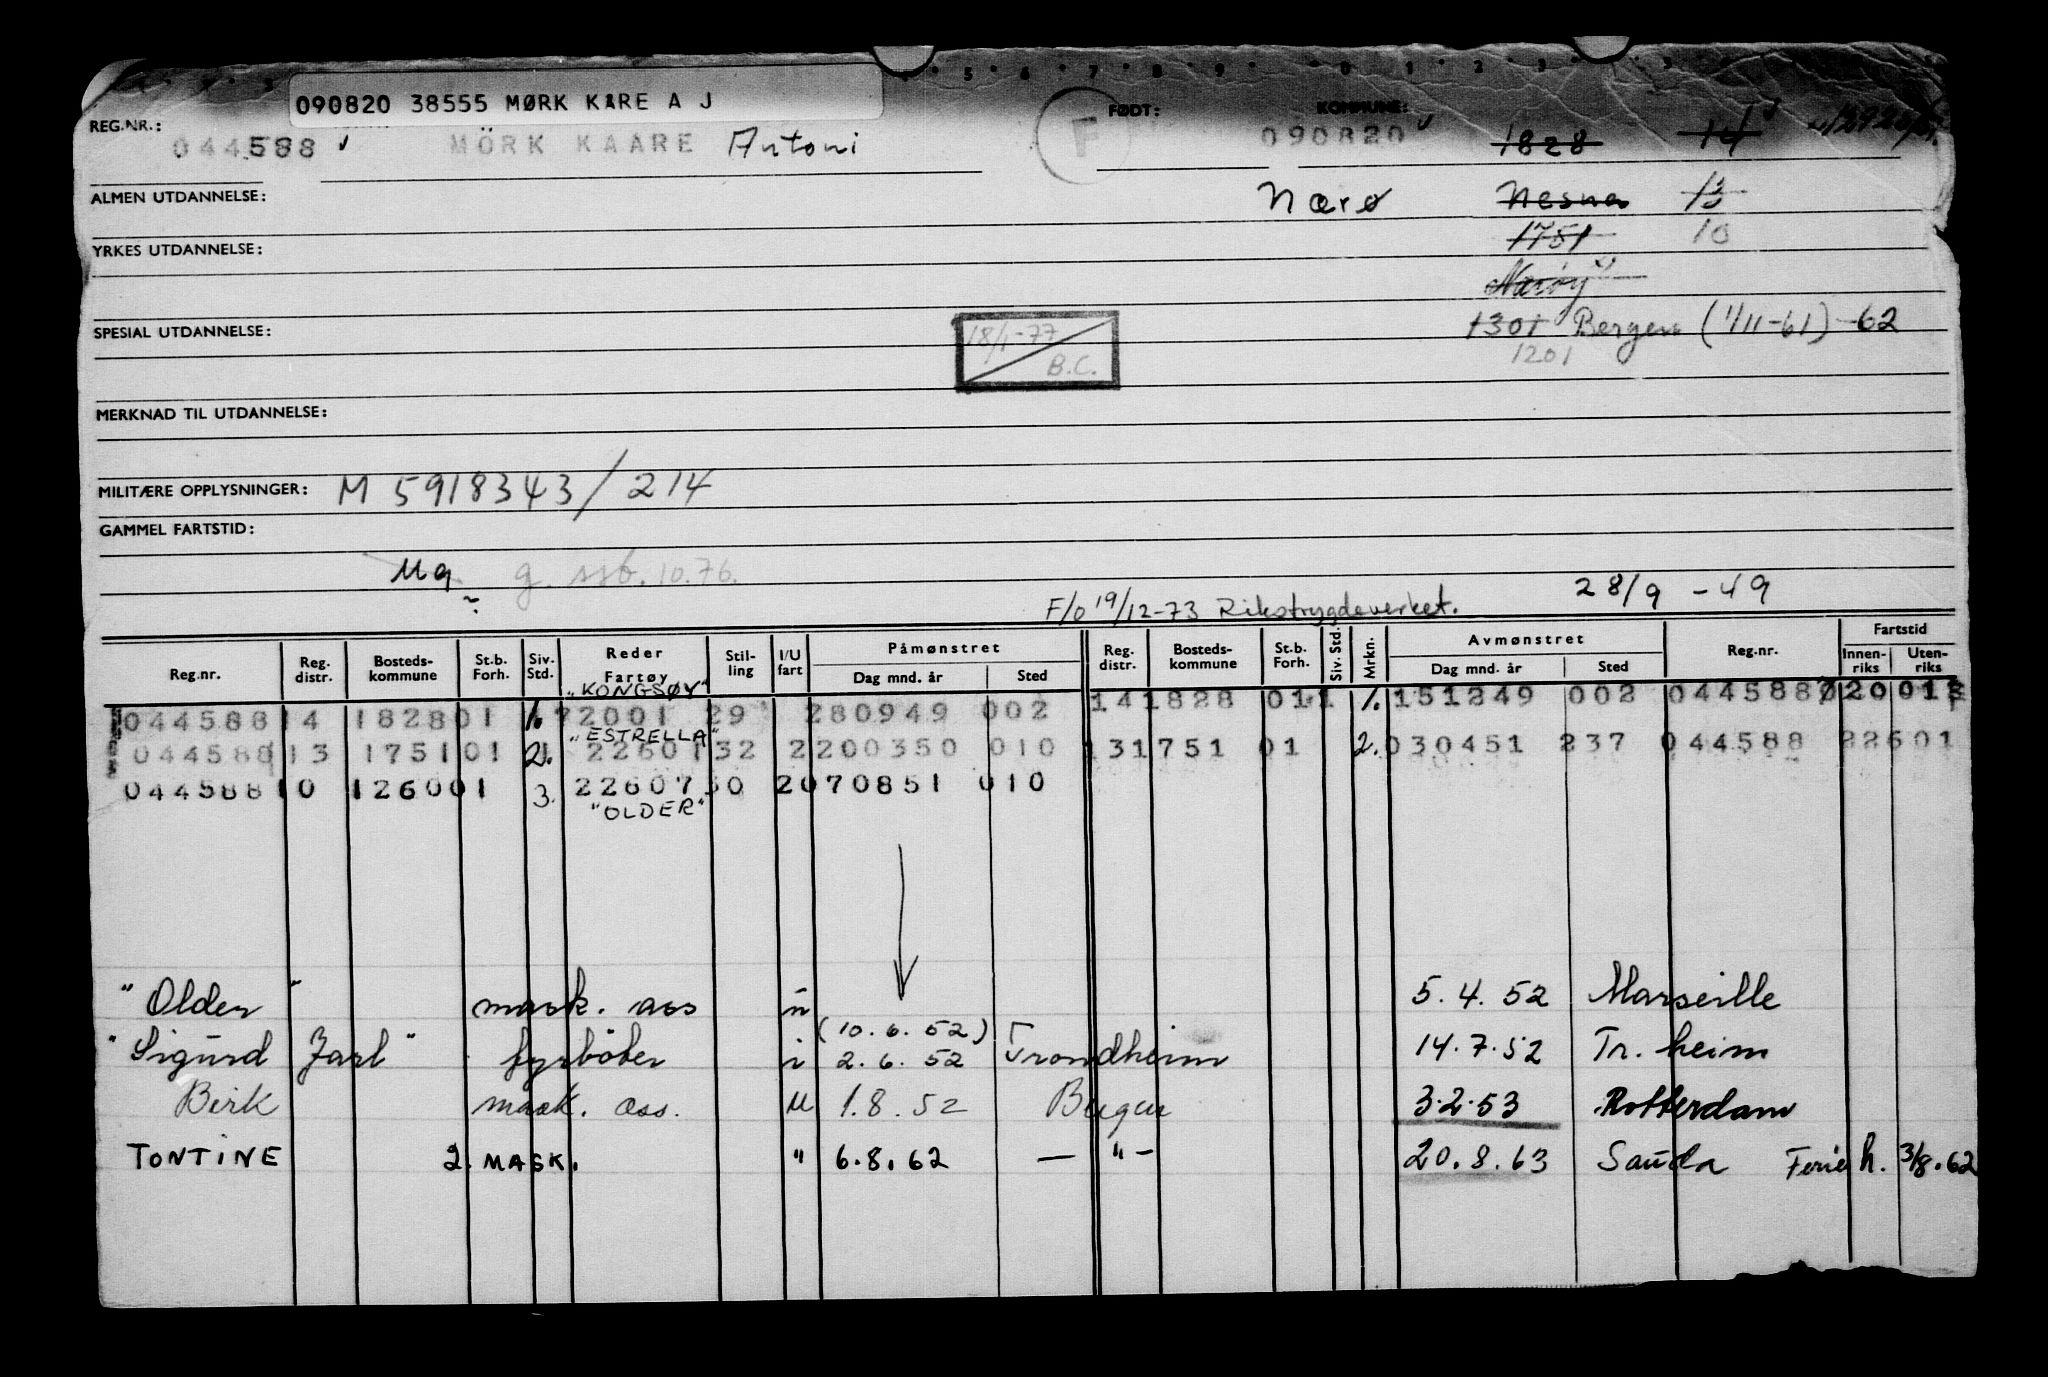 090820 38555 MØRK KARE A J
REG.NR.: FØDT: KOMMUNE:
044588 MÖRK KAARE Antoni F 090820 1828 14
ALMEN UTDANNELSE: Nærø Nesna 13
YRKES UTDANNELSE: 1751 10
Nærøy
SPESIAL UTDANNELSE: 18/1-77 1301 Bergen (1/11-61) -62
B.C. 1201
MERKNAD TIL UTDANNELSE:
MILITÆRE OPPLYSNINGER: M 5918343/214
GAMMEL FARTSTID:
Mq g. ssb. 10.76.
F/o 19/12-73 Rikstrygdeverket. 28/9 - 49
Reg.nr. Reg. distr. Bosteds-kommune St.b. Forh. Siv. Std. Reder Fartøy Stil-ling I/U fart Påmønstret Dag mnd. år Sted Reg. distr. Bosteds-kommune St.b. Forh. Siv. Std. Mrkn. Avmønstret Dag mnd. år Sted Reg.nr. Fartstid Innen-riks Uten-riks
"KONGSØY"
044588 14 1828 01 1. 72001 29 280949 002 141828 011 1. 151249 002 044588 72001
"ESTRELLA"
044588 13 1751 01 2. 22601 32 2200350 010 131751 01 2. 030451 237 044588 22601
044588 10 1260 01 3. 22607 30 2070851 010
"OLDER"
"Olden" mask. ass u 5.4.52 Marseille
(10.6.52)
"Sigurd Jarl" fyrböter i 2.6.52 Trondheim 14.7.52 Tr.heim
Birk mask. ass. u 1.8.52 Bergen 3.2.53 Rotterdam
TONTINE 2. MASK. " 6.8.62 — " — 20.8.63 Sauda Ferie h. 3/8.62